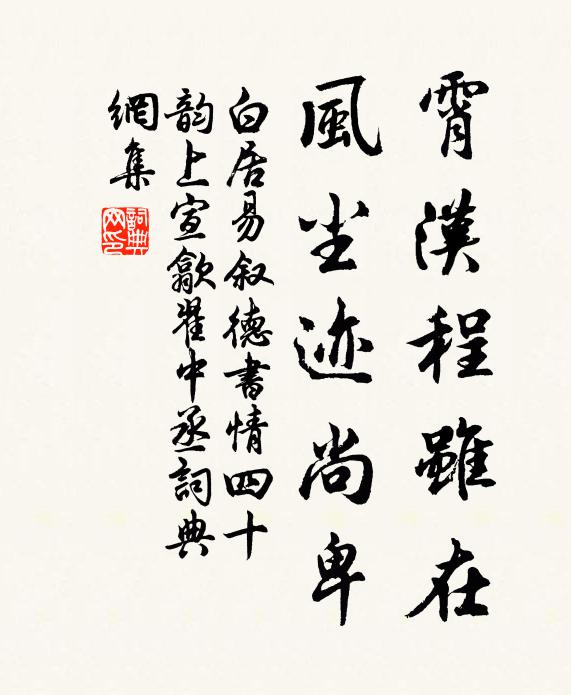 霄漢程雖在
風尘迹尚卑
白居易叙德書情四十
韵上宣歙翟中丞詞典
網集
詞典网印